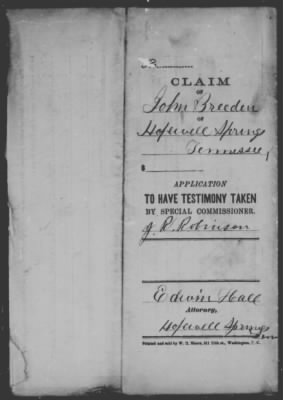 CLAIM
OF
John Breeden
OF
Hopewell Springs
Tennessee,
$
APPLICATION
TO HAVE TESTIMONY TAKEN
BY SPECIAL COMMISSIONER.
J. R. Robinson
Edwin Hall
Attorney,
Hopewell Springs
Printed and sold by W. H. Moore, 511 11th st., Washington, D. C.